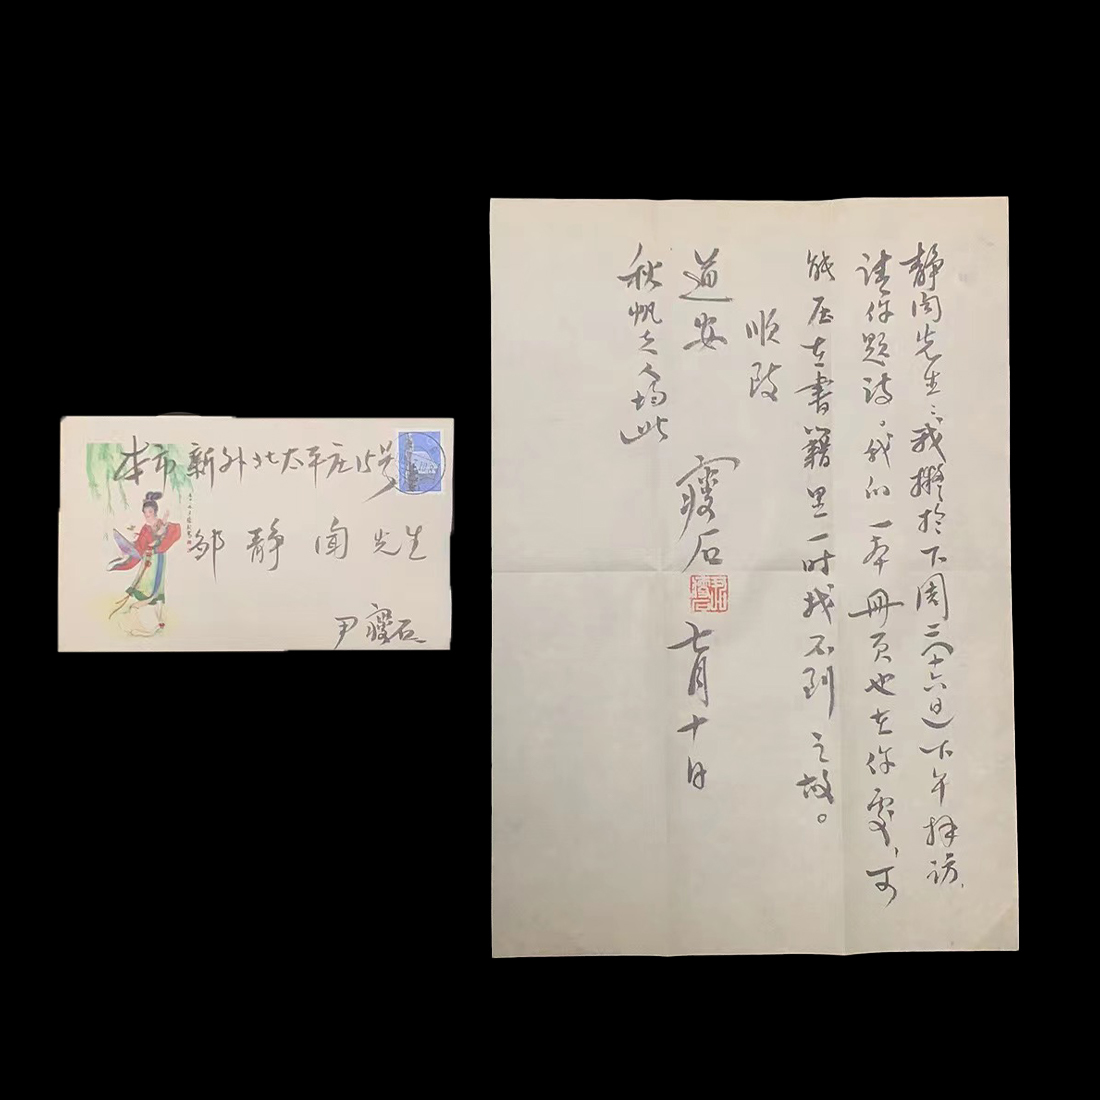 本市新外北太平庄15号
邹静闻先生
尹瘦石
静闻先生:我拟于下周二(十六日)下午拜访,
请你题诗。我的一本册页也在你处,可
能压在书籍里一时找不到之故。
顺致
道安
瘦石
七月十日
秋帆夫人均此